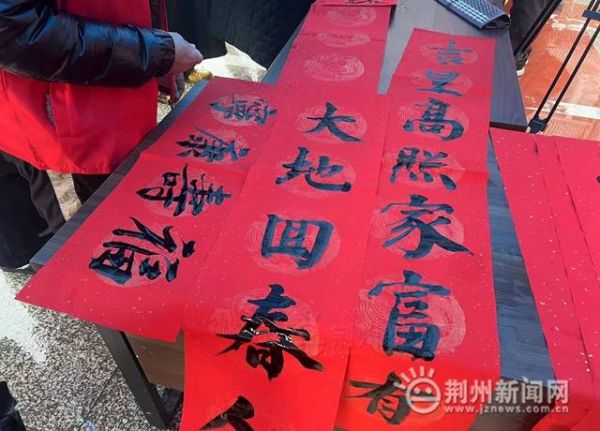 吉星高照家富有
大地回春人
福壽康寧
荆州新闻网
www.jznews.com.cn